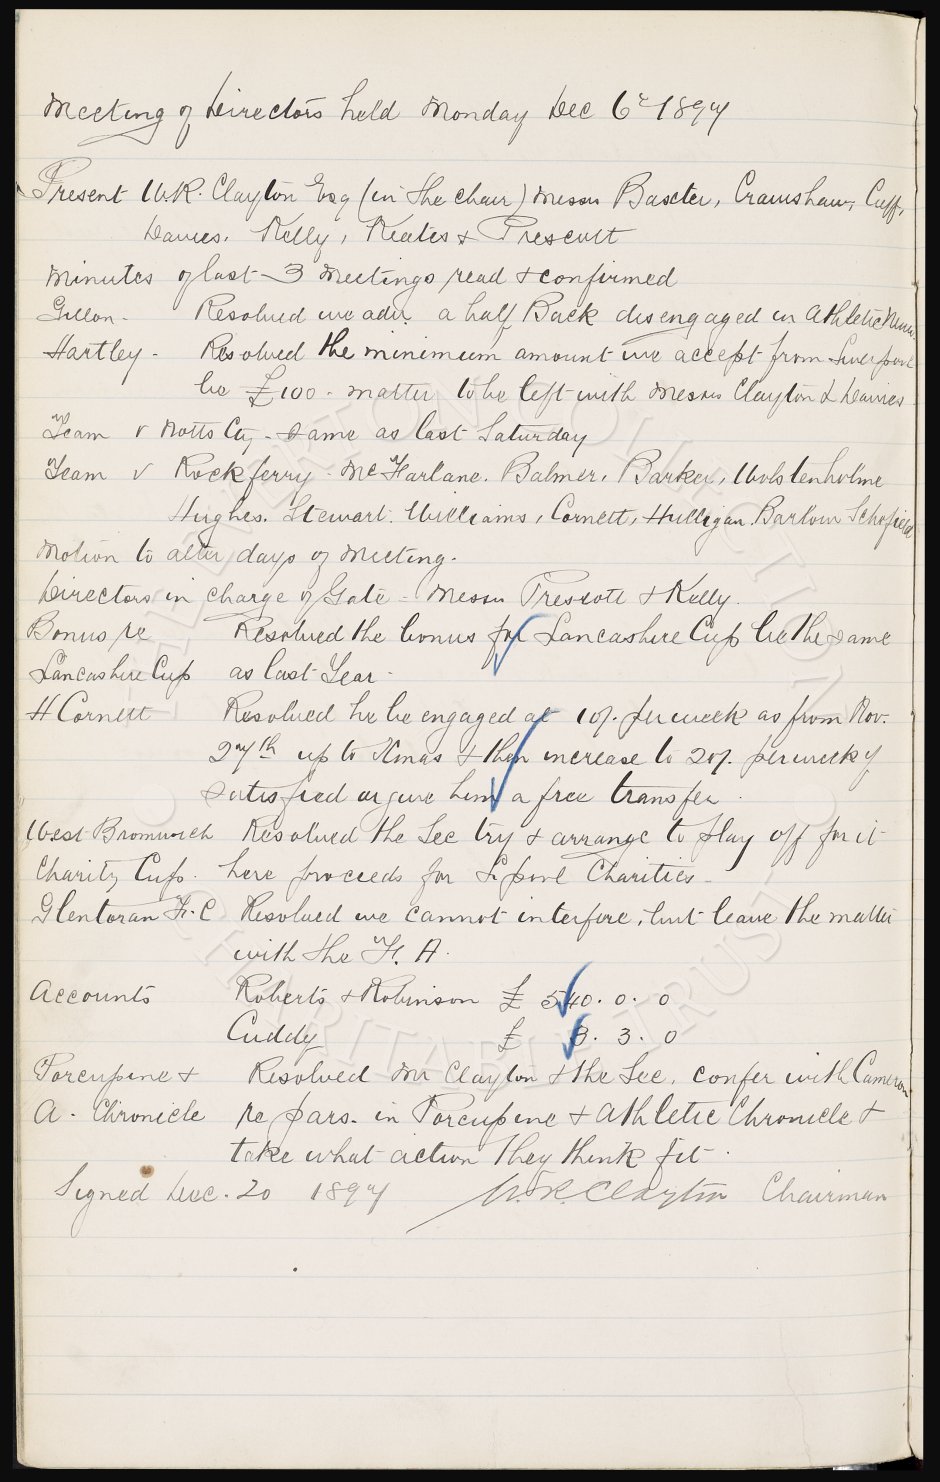 Meeting of Directors held Monday Dec 6th 1897
Present W.R. Clayton Esq (in the chair) Messrs Baxter, Crawshaw, Cuff,
Davies, Kelly, Keates & Prescott
Minutes of last 3 Meetings read & confirmed
Gillon - Resolved we adv. a half Back disengaged in Athletic News.
Hartley - Resolved the minimum amount we accept from Liverpool
be £100 - matter to be left with Messrs Clayton & Davies
Team v Notts Cty - same as last Saturday
Team v Rockferry - McFarlane, Balmer, Barker, Wolstenholme
Hughes, Stewart, Williams, Cornett, Hulligan, Barlow Schofield
Motion to alter days of Meeting.
Directors in charge of Gate - Messrs Prescott & Kelly.
Bonus re Resolved the bonus for Lancashire Cup be the same
Lancashire Cup as last Year -
H Cornett Resolved he be engaged at 10/- per week as from Nov.
27th up to Xmas & then increase to 20/- per week if
satisfied or give him a free transfer.
West Bromwich Resolved the Sec try & arrange to play off for it
Charity Cup. here proceeds for L'pool Charities -
Glentoran F.C Resolved we cannot interfere, but leave the matter
with the F. A.
Accounts Roberts & Robinson £ 540. 0. 0
Cuddy £ 3. 3. 0
Porcupine & Resolved Mr Clayton & the Sec, confer with Cameron
A. Chronicle re pars. in Porcupine & Athletic Chronicle &
take what action they think fit.
Signed Dec. 20 1897 W.R. Clayton Chairman